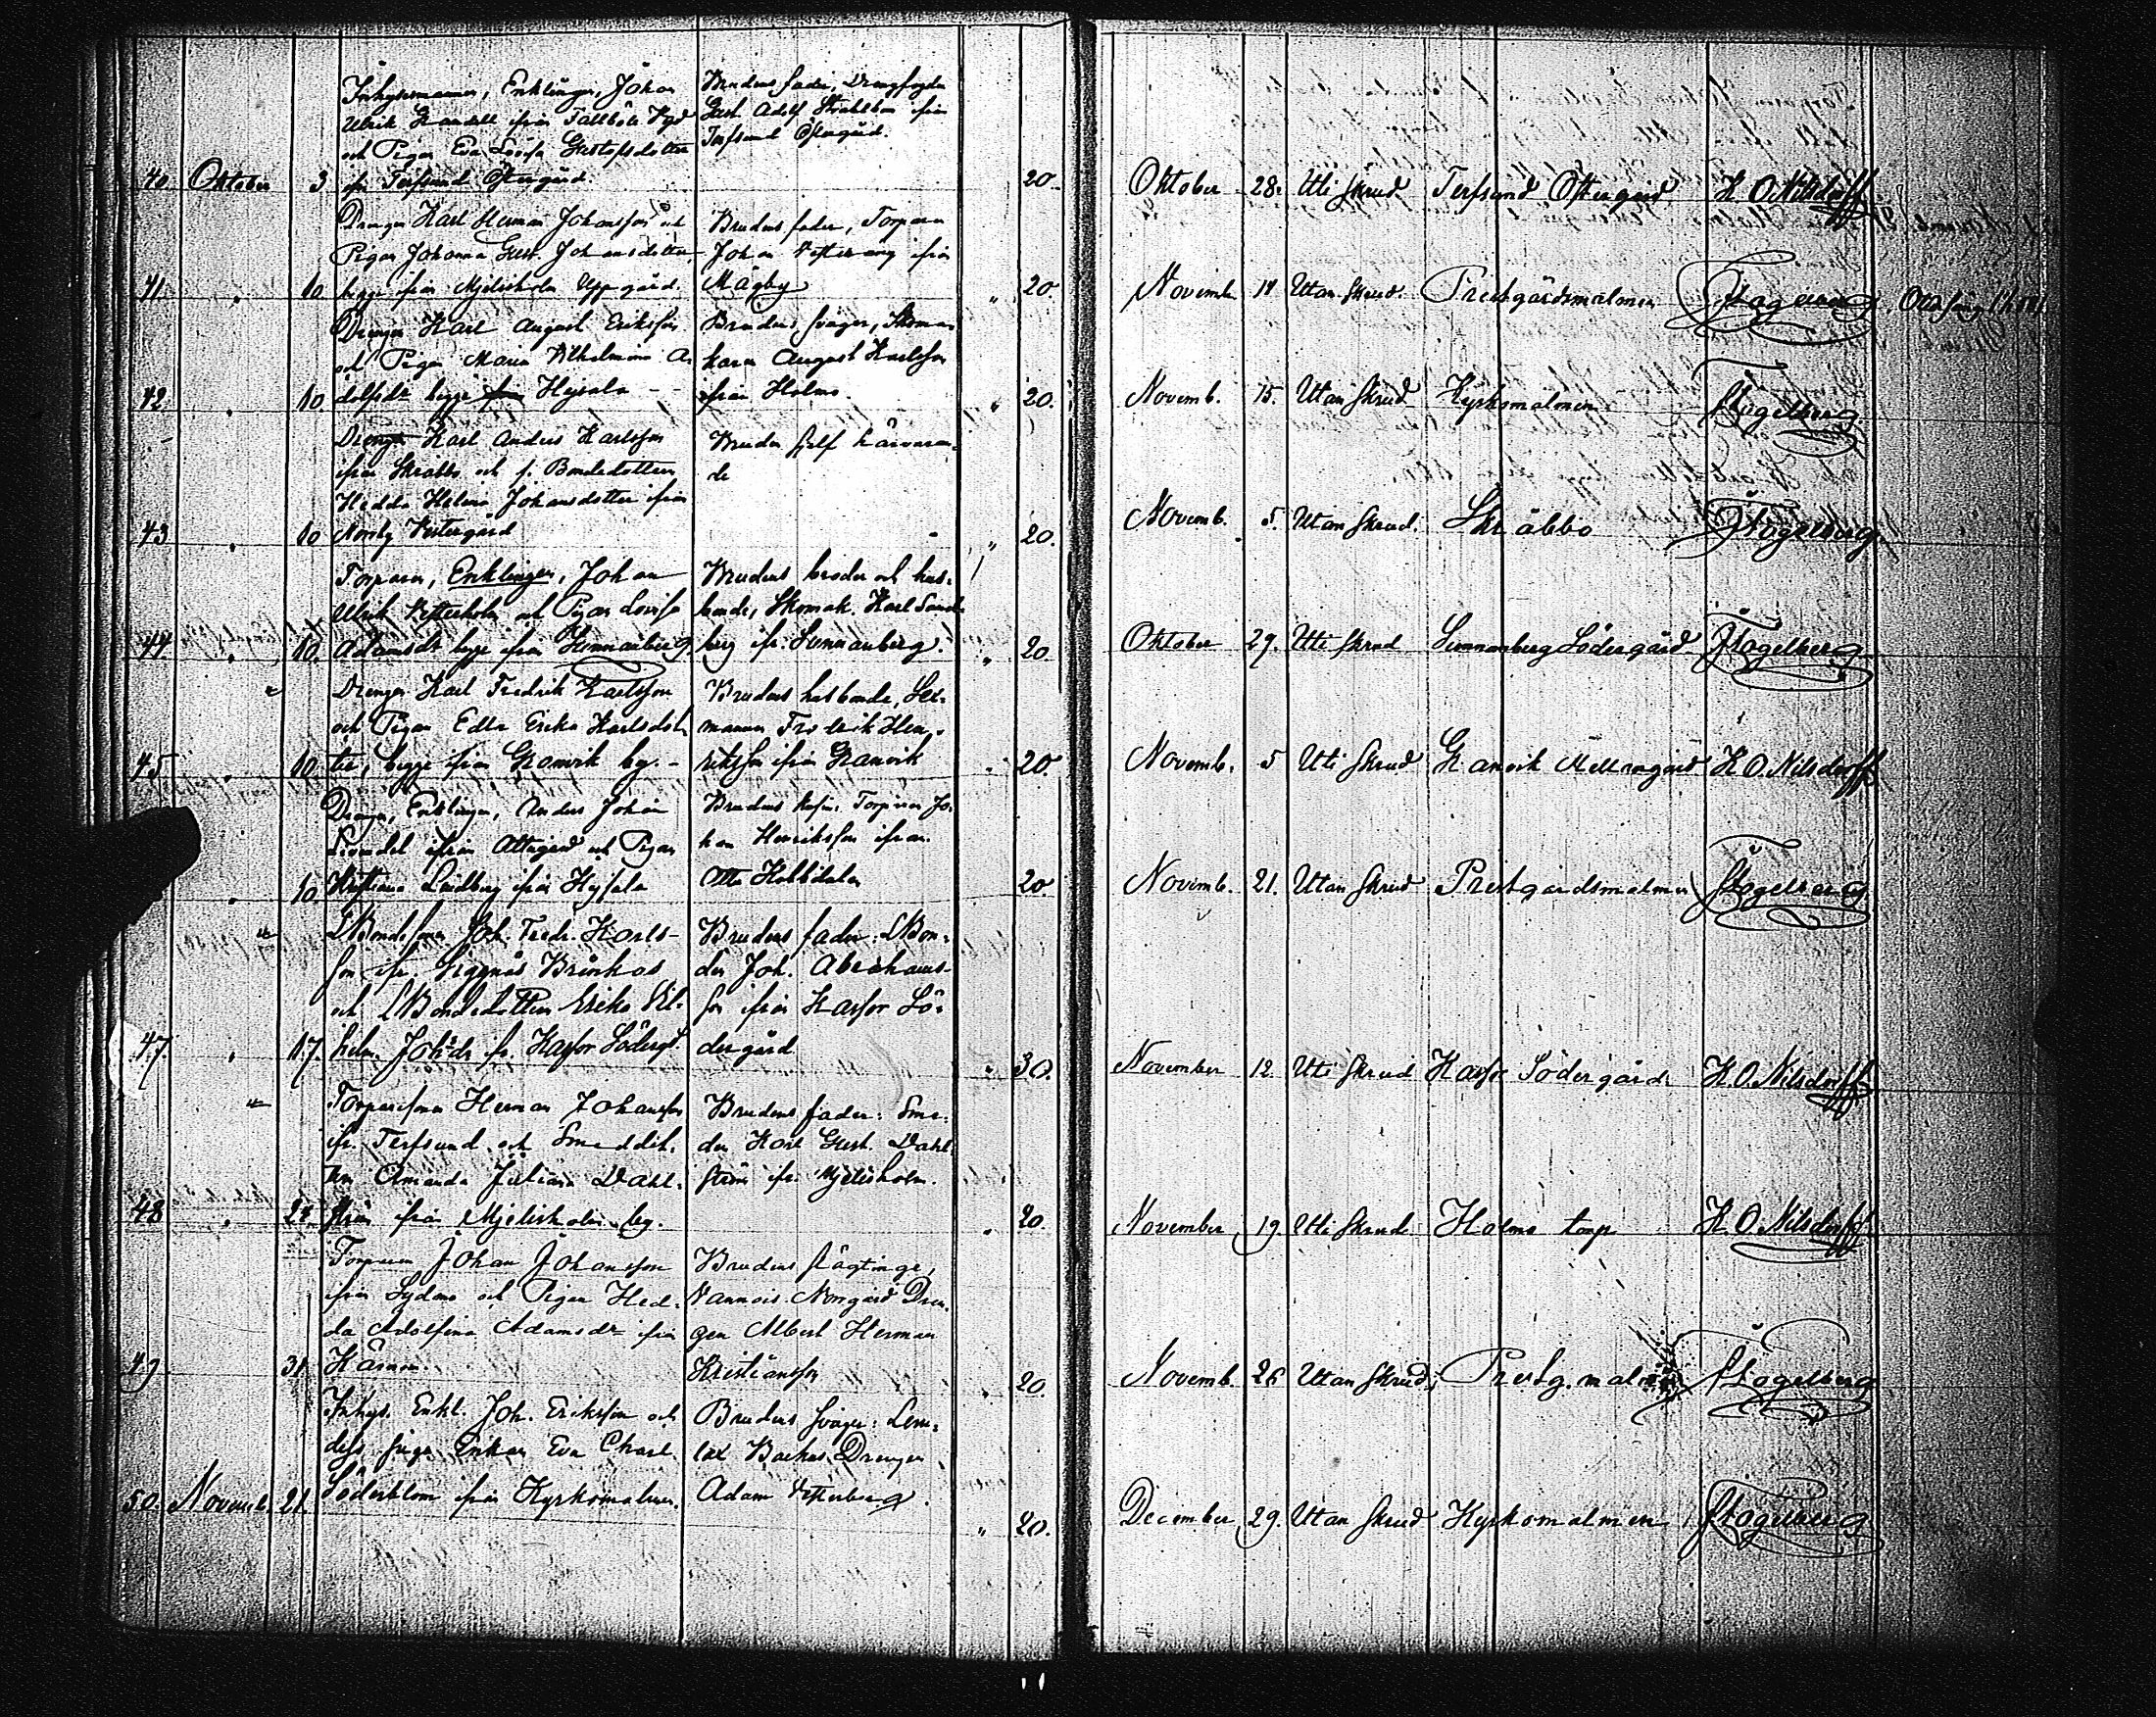 Inhysesmannen, Enklingen, Johan
Ulrik Grandell ifrån Tallböle Nygd
och Pigan Eva Lovisa Gustafsdotter
ifr. Terfsund Östergård.
Brudens fader, Drengfogden
Gust. Adolf Strahlbom ifrån
Terfsund Östergård.
40. Oktober 3 20.
Oktober 28. Uti skrud Terfsund Östergård K O Nilsdorff
Drengen Karl Herman Johansson och
Pigan Johanna Gust. Johansdotter,
begge från Mjelisholm Uppgård.
Brudens fader, Torparen
Johan Vesteräng ifrån
Mågby
41. " 10. " 20.
November 14 Utan skrud. Prestgårdsmalmen Fogelberg.
Drengen Karl August Eriksson
och Pigan Maria Vilhelmina A-
dolfsdr begge från Hysala
Brudens svåger, Skoma-
karen August Karlsson
från Holmo.
42. " 10. " 20.
Novemb. 15. Utan skrud Kyrkomalmen Fogelberg
Drengen Karl Anders Karlsson
från Skräbbo och f. Bondedottern
Hedda Helena Johansdotter ifrån
Norrby Vestergård
Bruden sjelf närvaran-
de
43 " 10 " 20.
Novemb. 5. Utan skrud. Skräbbo Fogelberg.
Torparen, Enklingen, Johan
Ulrik Vesterholm och Pigan Lovisa
Adamsdr begge från Sunnanberg.
Brudens broder och hus-
bonde, Skomak. Karl Sand-
berg ifr. Sunnanberg.
44. " 10. " 20
Oktober 29. Uti skrud Sunnanberg Södergård Fogelberg
Drengen Karl Fredrik Karlsson
och Pigan Edla Erika Karlsdot-
ter, begge ifrån Granvik by.
Brudens husbonde, Sex-
mannen Fredrik Hen-
riksson ifrån Granvik
45 " 10. " 20.
Novemb. 5 Uti skrud Granvik Mellangård K O. Nilsdorff
Drengen, Enklingen, Anders Johan
ifrån Attugård och Pigan
Kristiana Lindberg ifrån Hysala
Torparen Jo-
han Henriksson ifrån
Attu
" 10 20
Novemb. 21. Utan skrud Prestgårdsmalmen Fogelberg
Bondesonen Joh. Fredr. Karls-
son ifr. Siggnäs Brinkas
och Bondedottern Erika Vil-
helm. Joh:dr fr. Karfor Södergd.
Brudens fader: Bon-
den Joh. Abrahams-
son ifrån Karfor Sö-
dergård
47. " 17. " 30.
November 12. Uti skrud Karfor Södergård. K. O. Nilsdorff
Torparesonen Herman Johansson
ifr. Terfsund och Smeddot-
tren Amanda Juliana Dahl-
ström från Mjelisholm by.
Brudens fader: Sme-
den Karl Gust. Dahl-
ström ifr. Mjelisholm.
48 " 24. " 20
November 19. Uti skrud Holmo torp K. O. Nilsdorff
Torparen Johan Johansson
från Sydmo och Pigan Hed-
da Adolfina Adamsdr från
Kärmo.
Brudens slägtinge,
Vannois Norrgård Dren-
gen Albert Herman
Kristiansson
49 31 " 20.
Novemb. 26 Utan skrud Prestg. malmen Fogelberg
Inhys. Enkl. Joh. Eriksson och
Enkan Eva Charl.
Söderblom från Kyrkomalmen.
Brudens svåger: Lem-
lax Backas Drengen
Adam Vesterberg.
50. Novemb. 21. " 20.
December 29. Utan skrud Kyrkomalmen Fogelberg